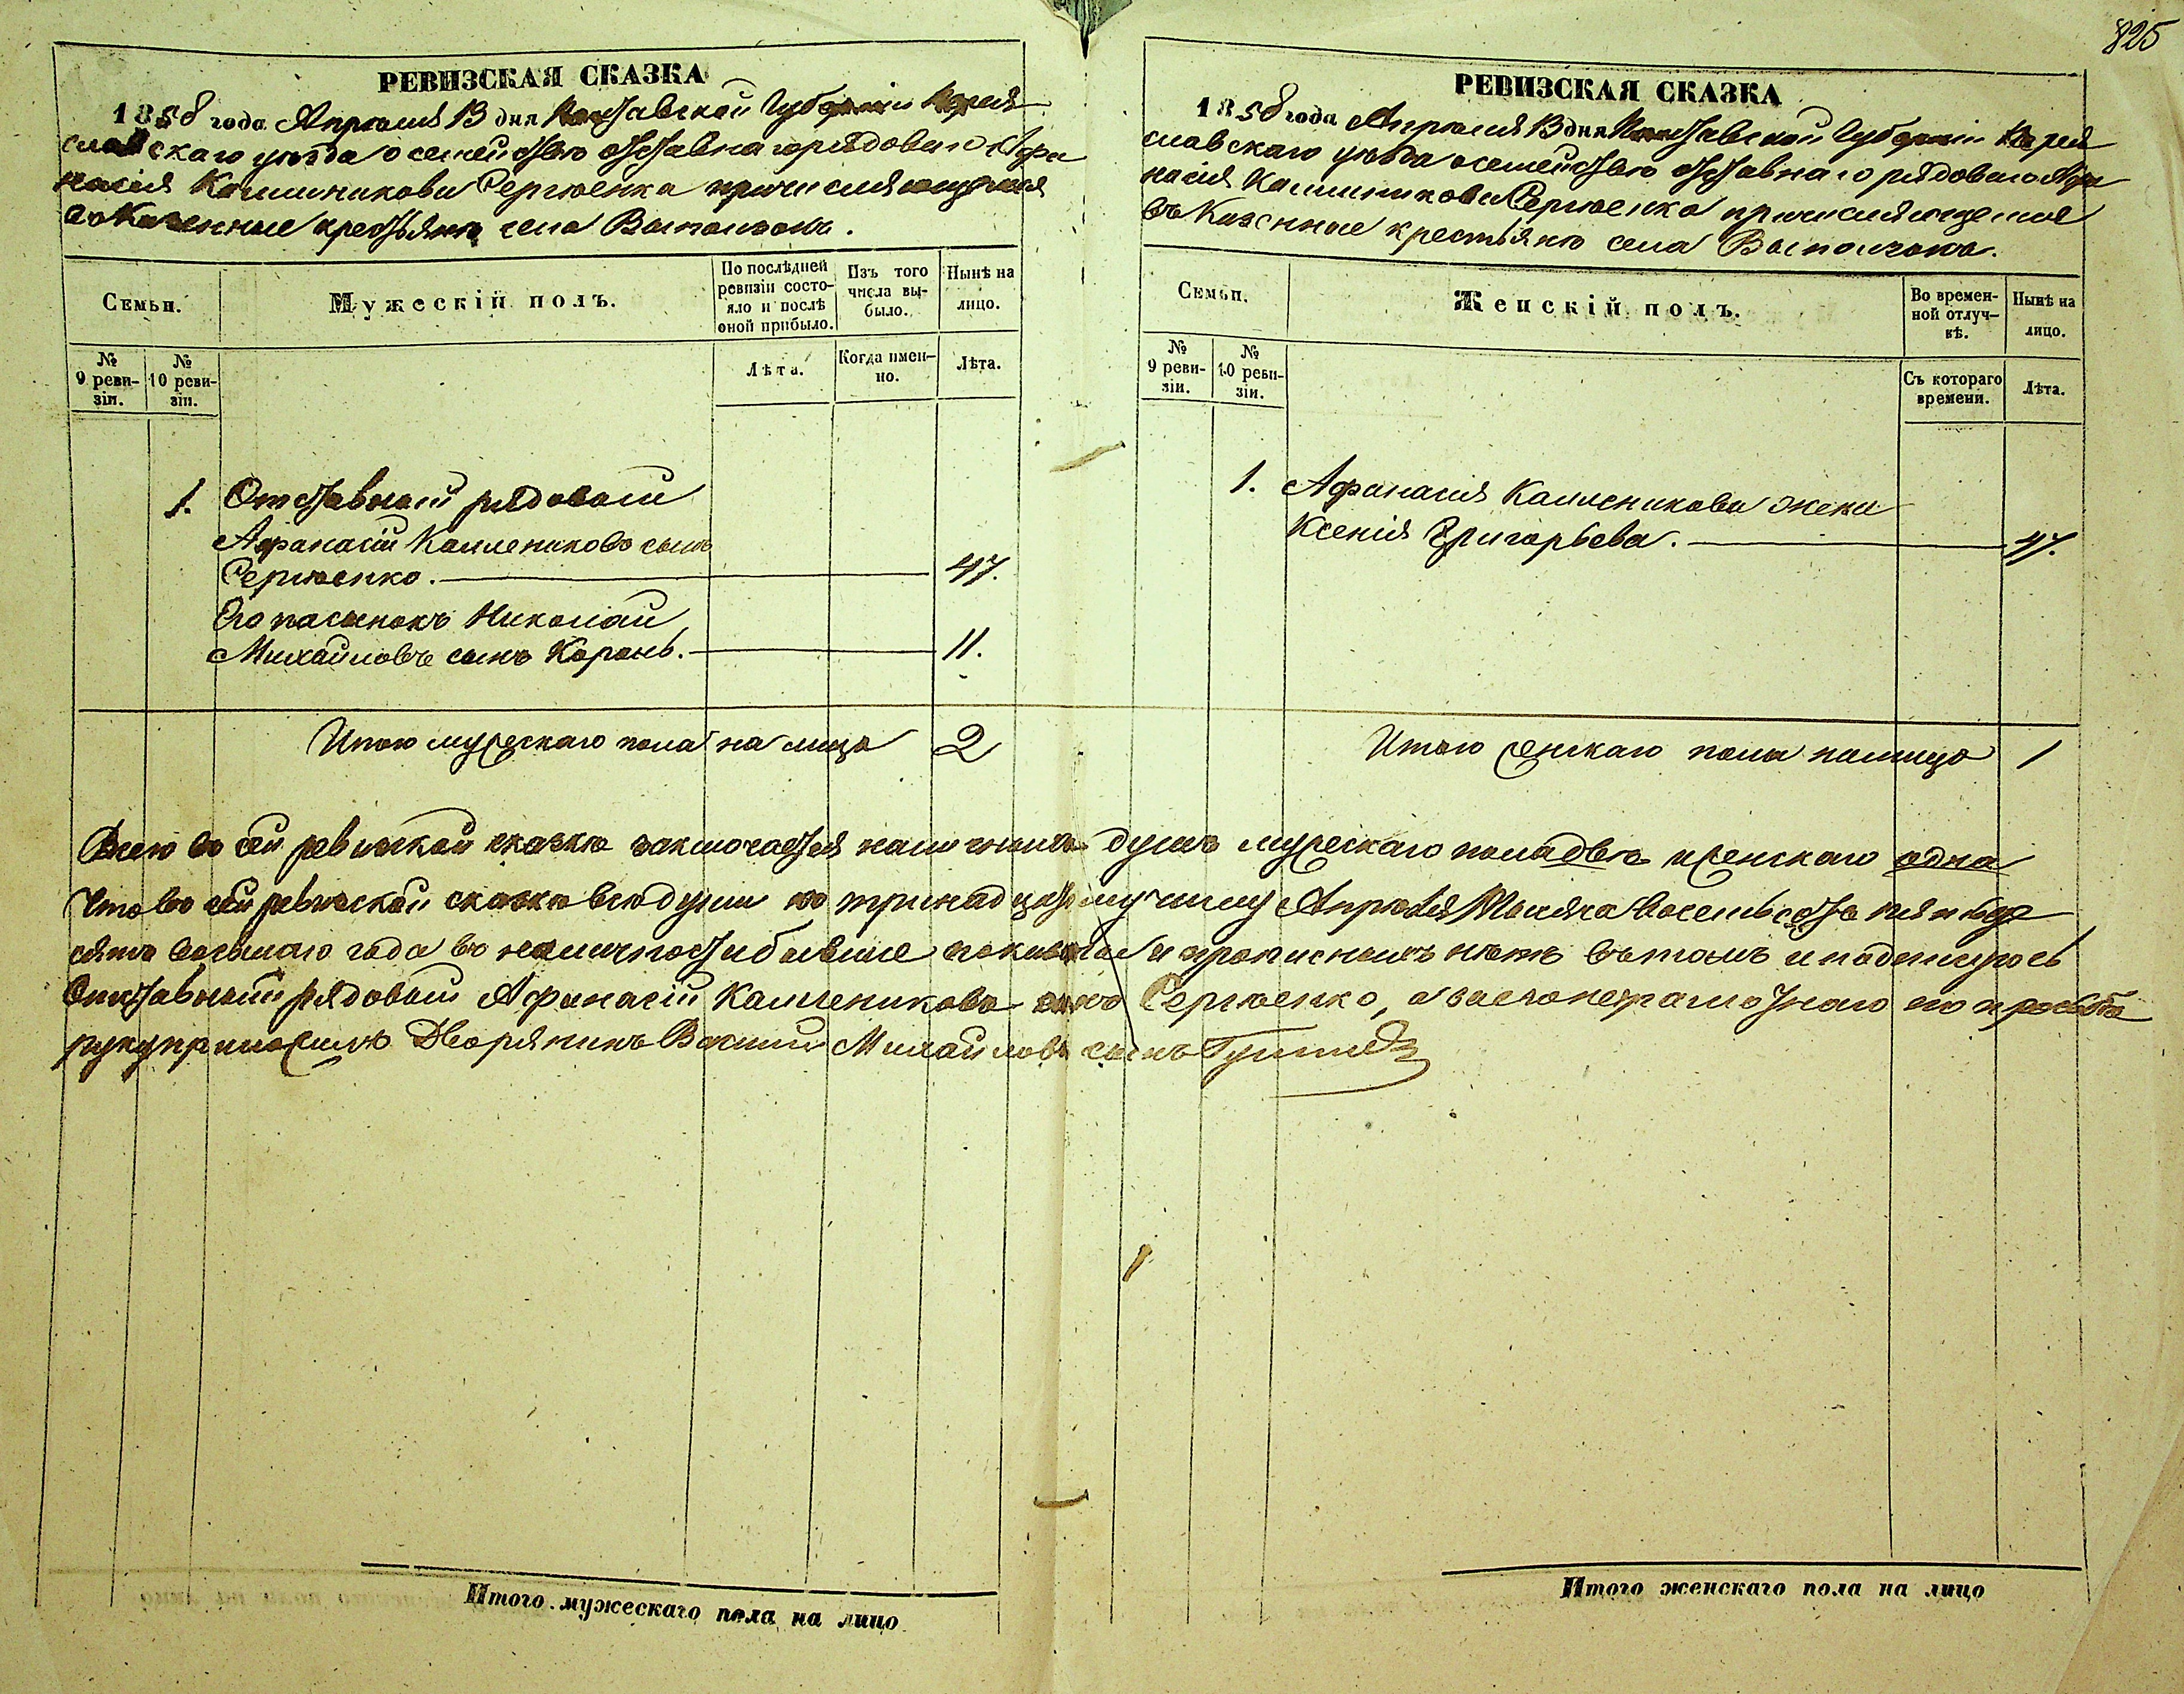 825
РЕВИЗСКАЯ СКАЗКА
1858 года Апрѣля 13 дня Полтавской Губерніи Перея
славскаго уѣзда о семействѣ отставнаго рядоваго Афа
насія Калиникова Сергѣенка причисляющемся
въ Казенные крестьяне села Выползокъ.
Семьи.
Мужескій полъ.
По послѣдней
ревизіи состо-
яло и послѣ
оной прибыло.
Изъ того
числа вы-
было.
Нынѣ на
лицо.
№
9 реви-
зіи.
№
10 реви-
зіи.
Лѣта.
Когда имен-
но.
Лѣта.
1. Отставный рядовой
Афанасій Каллениковъ сынъ
Сергѣенко. 47.
Его пасынокъ Николай
Михайловъ сынъ Корань. 11.
Итого мужескаго пола на лицо 2
РЕВИЗСКАЯ СКАЗКА
1858 года Апрѣля 13 дня Полтавской Губерніи Перея
славскаго уѣзда о семействѣ отставнаго рядоваго Афа
насія Калиникова Сергѣенка причисляющемся
въ Казенные крестьяне села Выползокъ.
Семьи.
Женскій полъ.
Во времен-
ной отлуч-
кѣ.
Нынѣ на
лицо.
№
9 реви-
зіи.
№
10 реви-
зіи.
Съ котораго
времени.
Лѣта.
1. Афанасія Калленикова жена
Ксенія Григорьева. 47.
Итого женскаго пола налицо 1
Всего въ сей ревизской сказкѣ заключается наличныхъ душъ мужескаго пола двѣ и женскаго одна
Что въ сей ревизской сказкѣ всѣ души по тринадцатому числу Апрѣля Мѣсяца восемьсотъ пятьде
сятъ восьмаго года въ наличности бывшіе показаны и прописныхъ нѣтъ въ томъ и подпишусь
Отставный рядовой Афанасій Каллениковъ сынъ Сергѣенко, а вместо неграмотнаго по прозьбѣ
руку приложилъ Дворянинъ Василій Михайловъ сынъ
Итого мужескаго пола на лицо
Итого женскаго пола на лицо